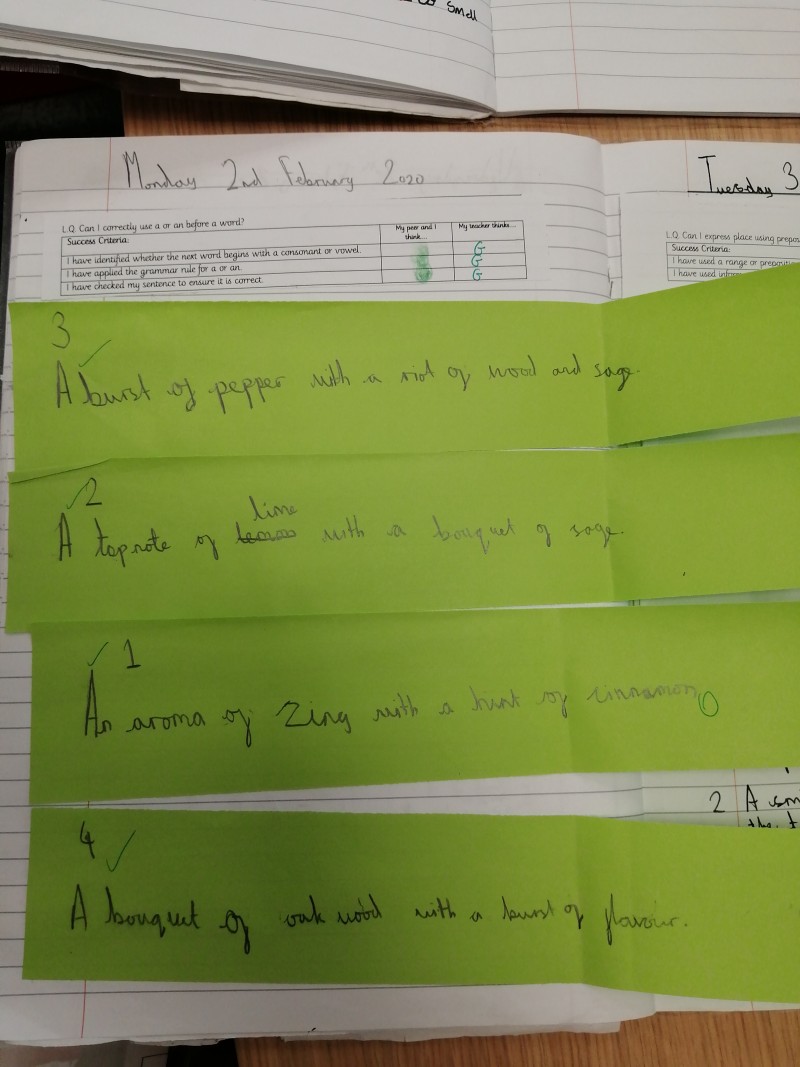 smell
Monday 2nd February 2020
Tuesday 3
L.Q. Can I correctly use a or an before a word?
My peer and I think...
My teacher thinks...
Success Criteria:
I have identified whether the next word begins with a consonant or vowel.
G
I have applied the grammar rule for a or an.
G
I have checked my sentence to ensure it is correct.
G
L.Q. Can I express place using
Success Criteria:
I have used a range or
I have used
3
A burst of pepper with a riot of wood and sage.
2
lime
A topnote of with a bouquet of sage.
1
An aroma of zing with a hint of cinnamon
2 A
4
A bouquet of oak wood with a burst of flavour.